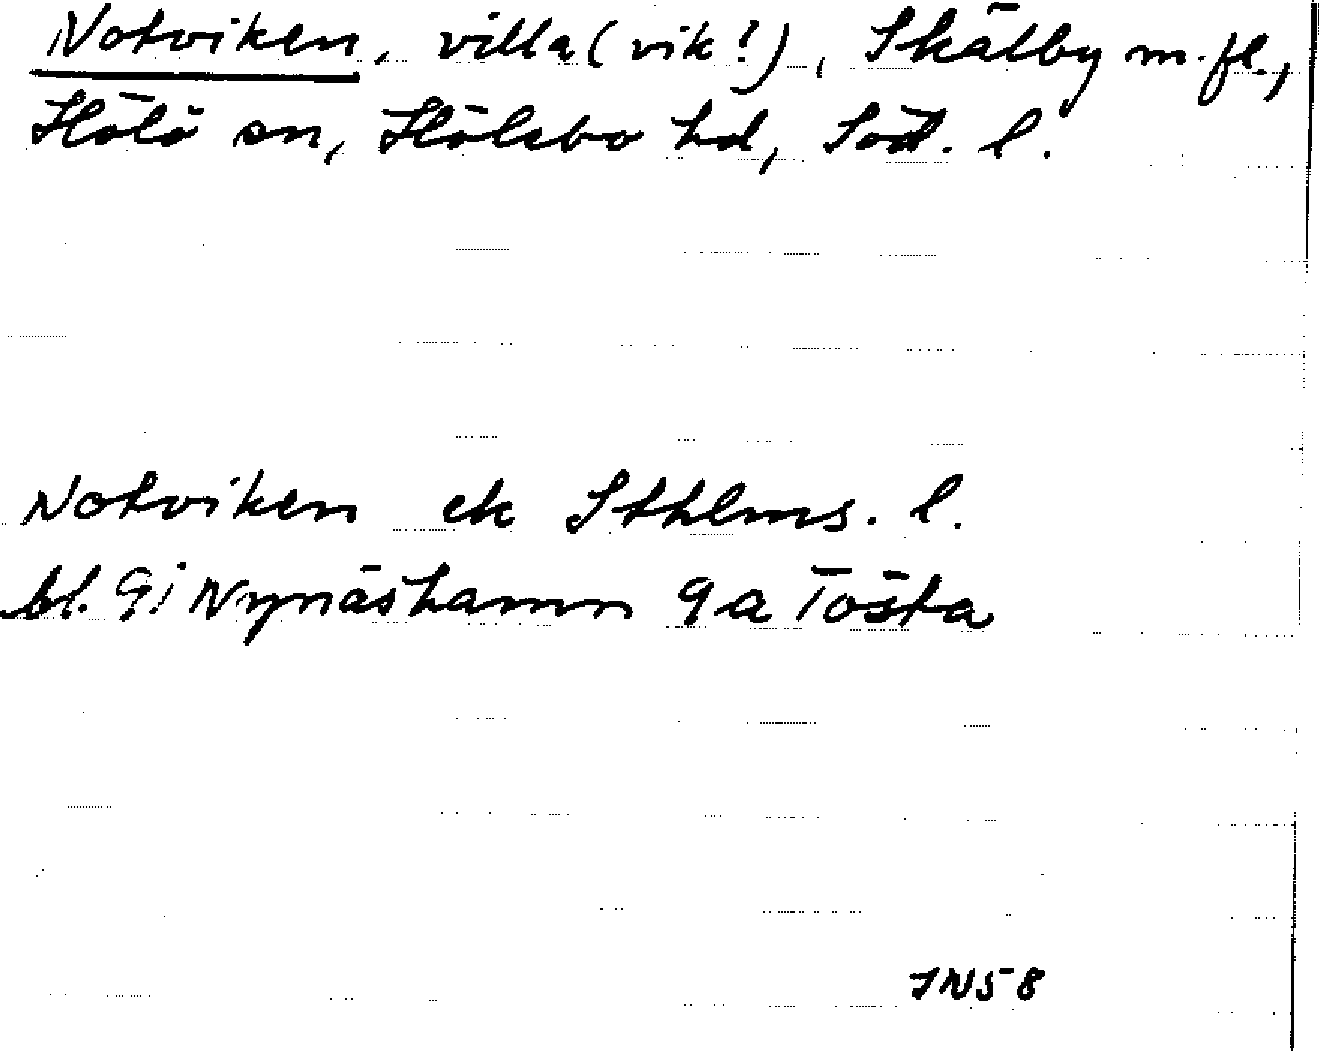 Notviken, villa (vik!), Skälby m.fl.,
Hölö sn, Hölebo hd, Söd. l.
Notviken ek Sthlms. l.
bl. 9i Nynäshamn 9a Tösta
JN58